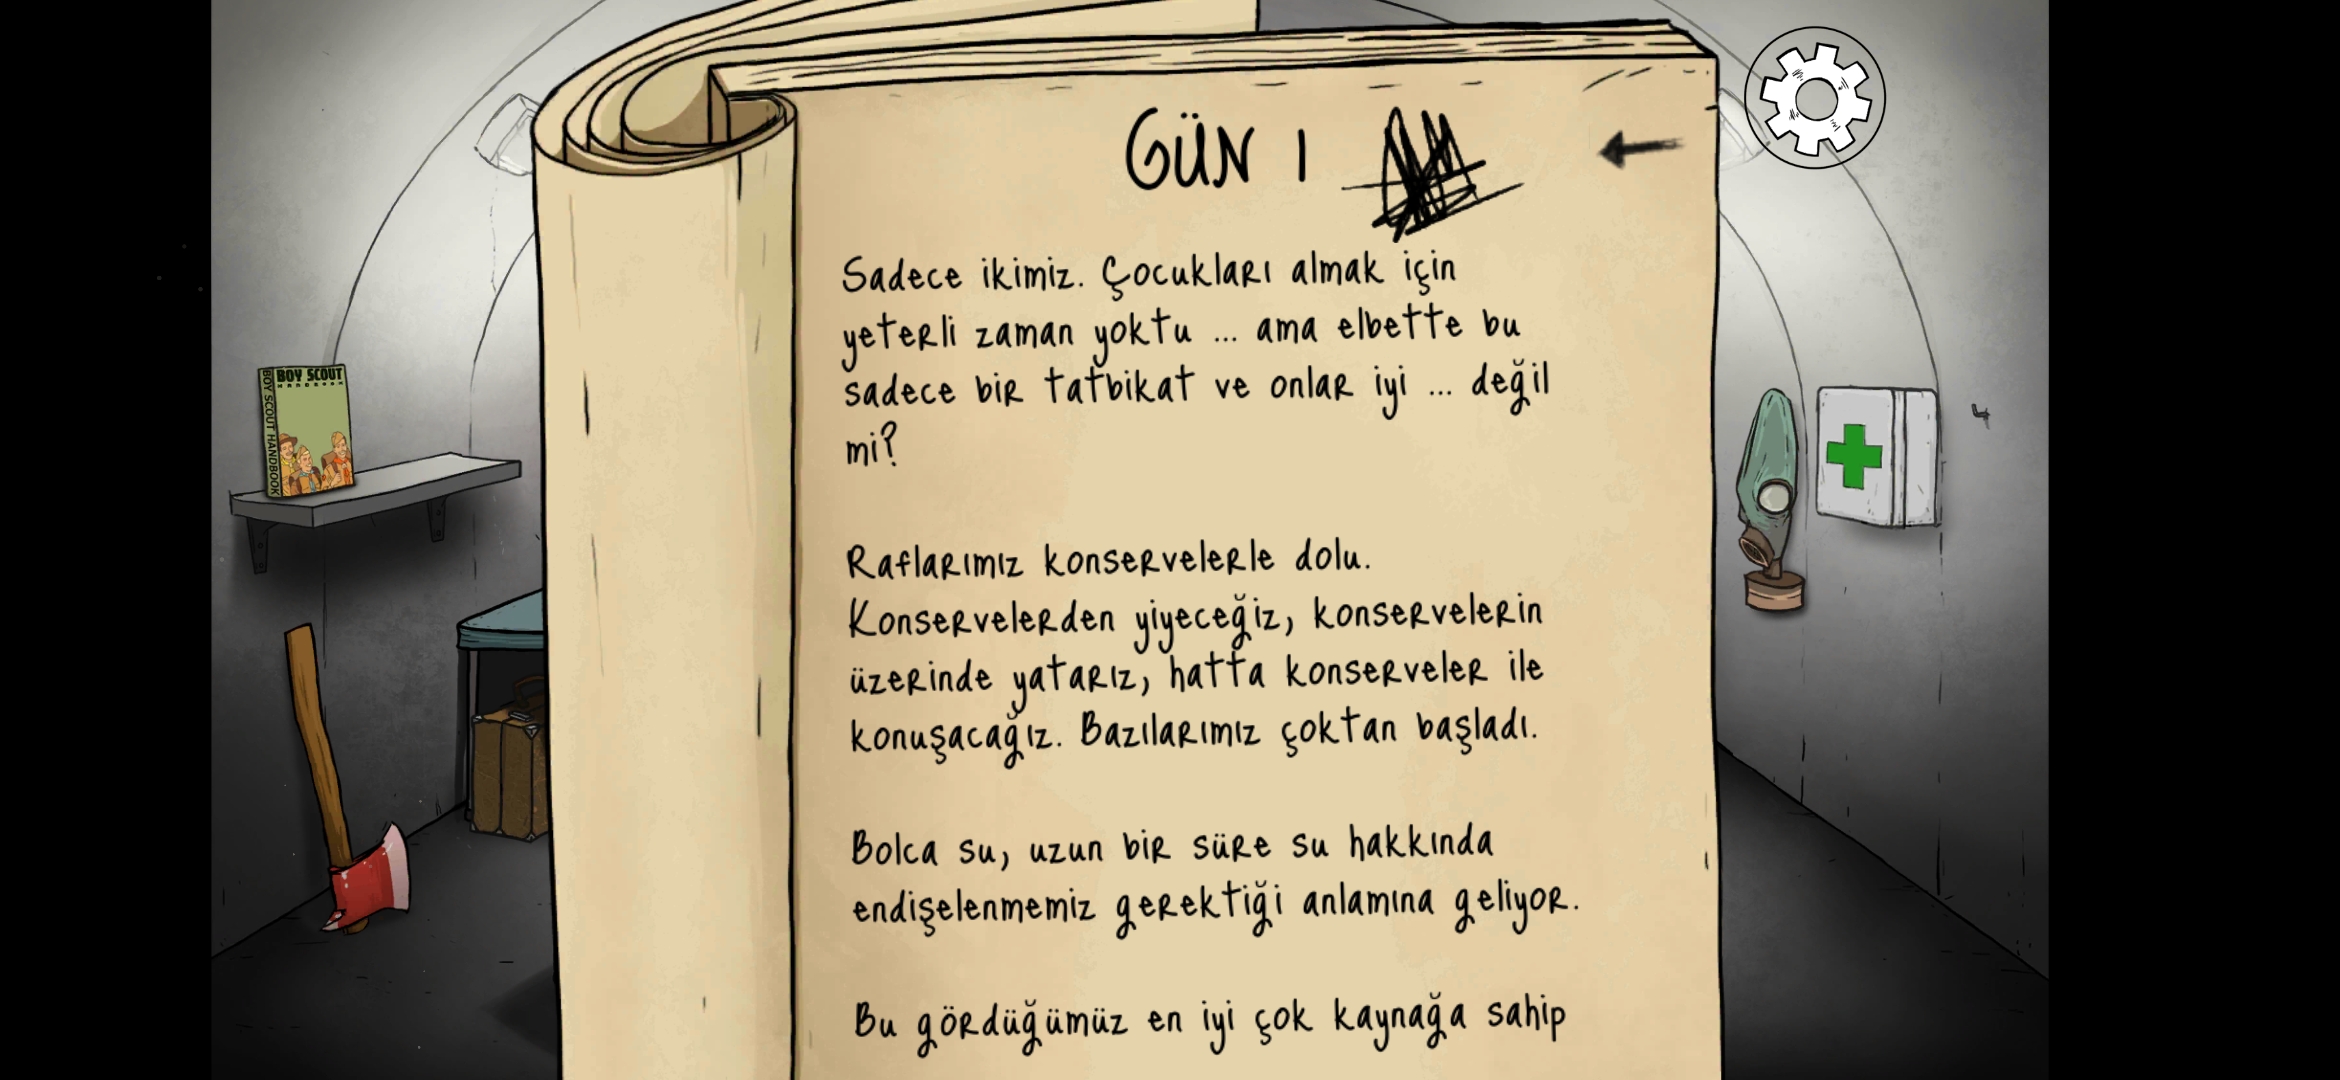 BOY SCOUT
HANDBOOK
BOY SCOUT HANDBOOK
GÜN 1
Sadece ikimiz. Çocukları almak için
yeterli zaman yoktu ... ama elbette bu
sadece bir tatbikat ve onlar iyi ... değil
mi?
Raflarımız konservelerle dolu.
Konservelerden yiyeceğiz, konservelerin
üzerinde yatarız, hatta konserveler ile
konuşacağız. Bazılarımız çoktan başladı.
Bolca su, uzun bir süre su hakkında
endişelenmemiz gerektiği anlamına geliyor.
Bu gördüğümüz en iyi çok kaynağa sahip